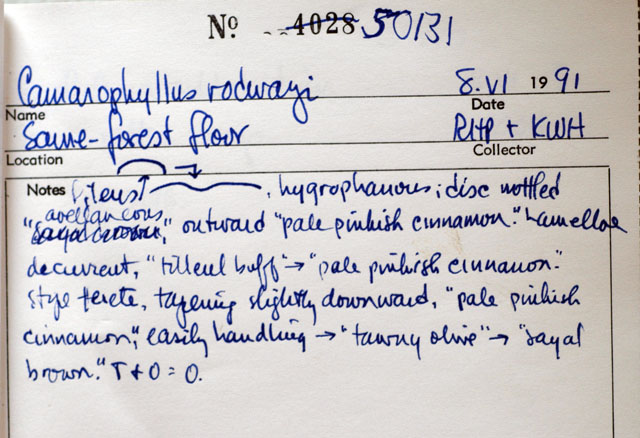 Nº 4028 50131
Camarophyllus rodwayi 8.VI 1991
Name Date
Same - forest floor RHP + KWH
Location Collector
Notes Pileus → , hygrophanous; disc mottled
"avellaneous," outward "pale pinkish cinnamon." Lamellae
decurrent, "tilleul buff" → "pale pinkish cinnamon."
Stipe terete, tapering slightly downward, "pale pinkish
cinnamon", easily handling → "tawny olive" → "sayal
brown." T + O = O.